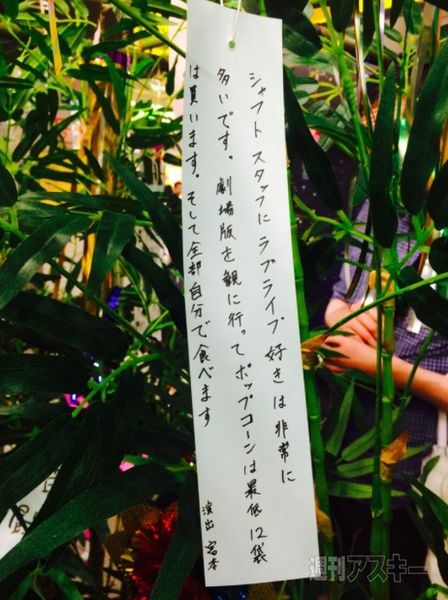 シャフト スタッフに ラブライブ 好きは 非常に
多いです。劇場版を観に行ってポップコーンは最低12袋
は買います。そして全部自分で食べます
演出 宮本
週刊アスキー